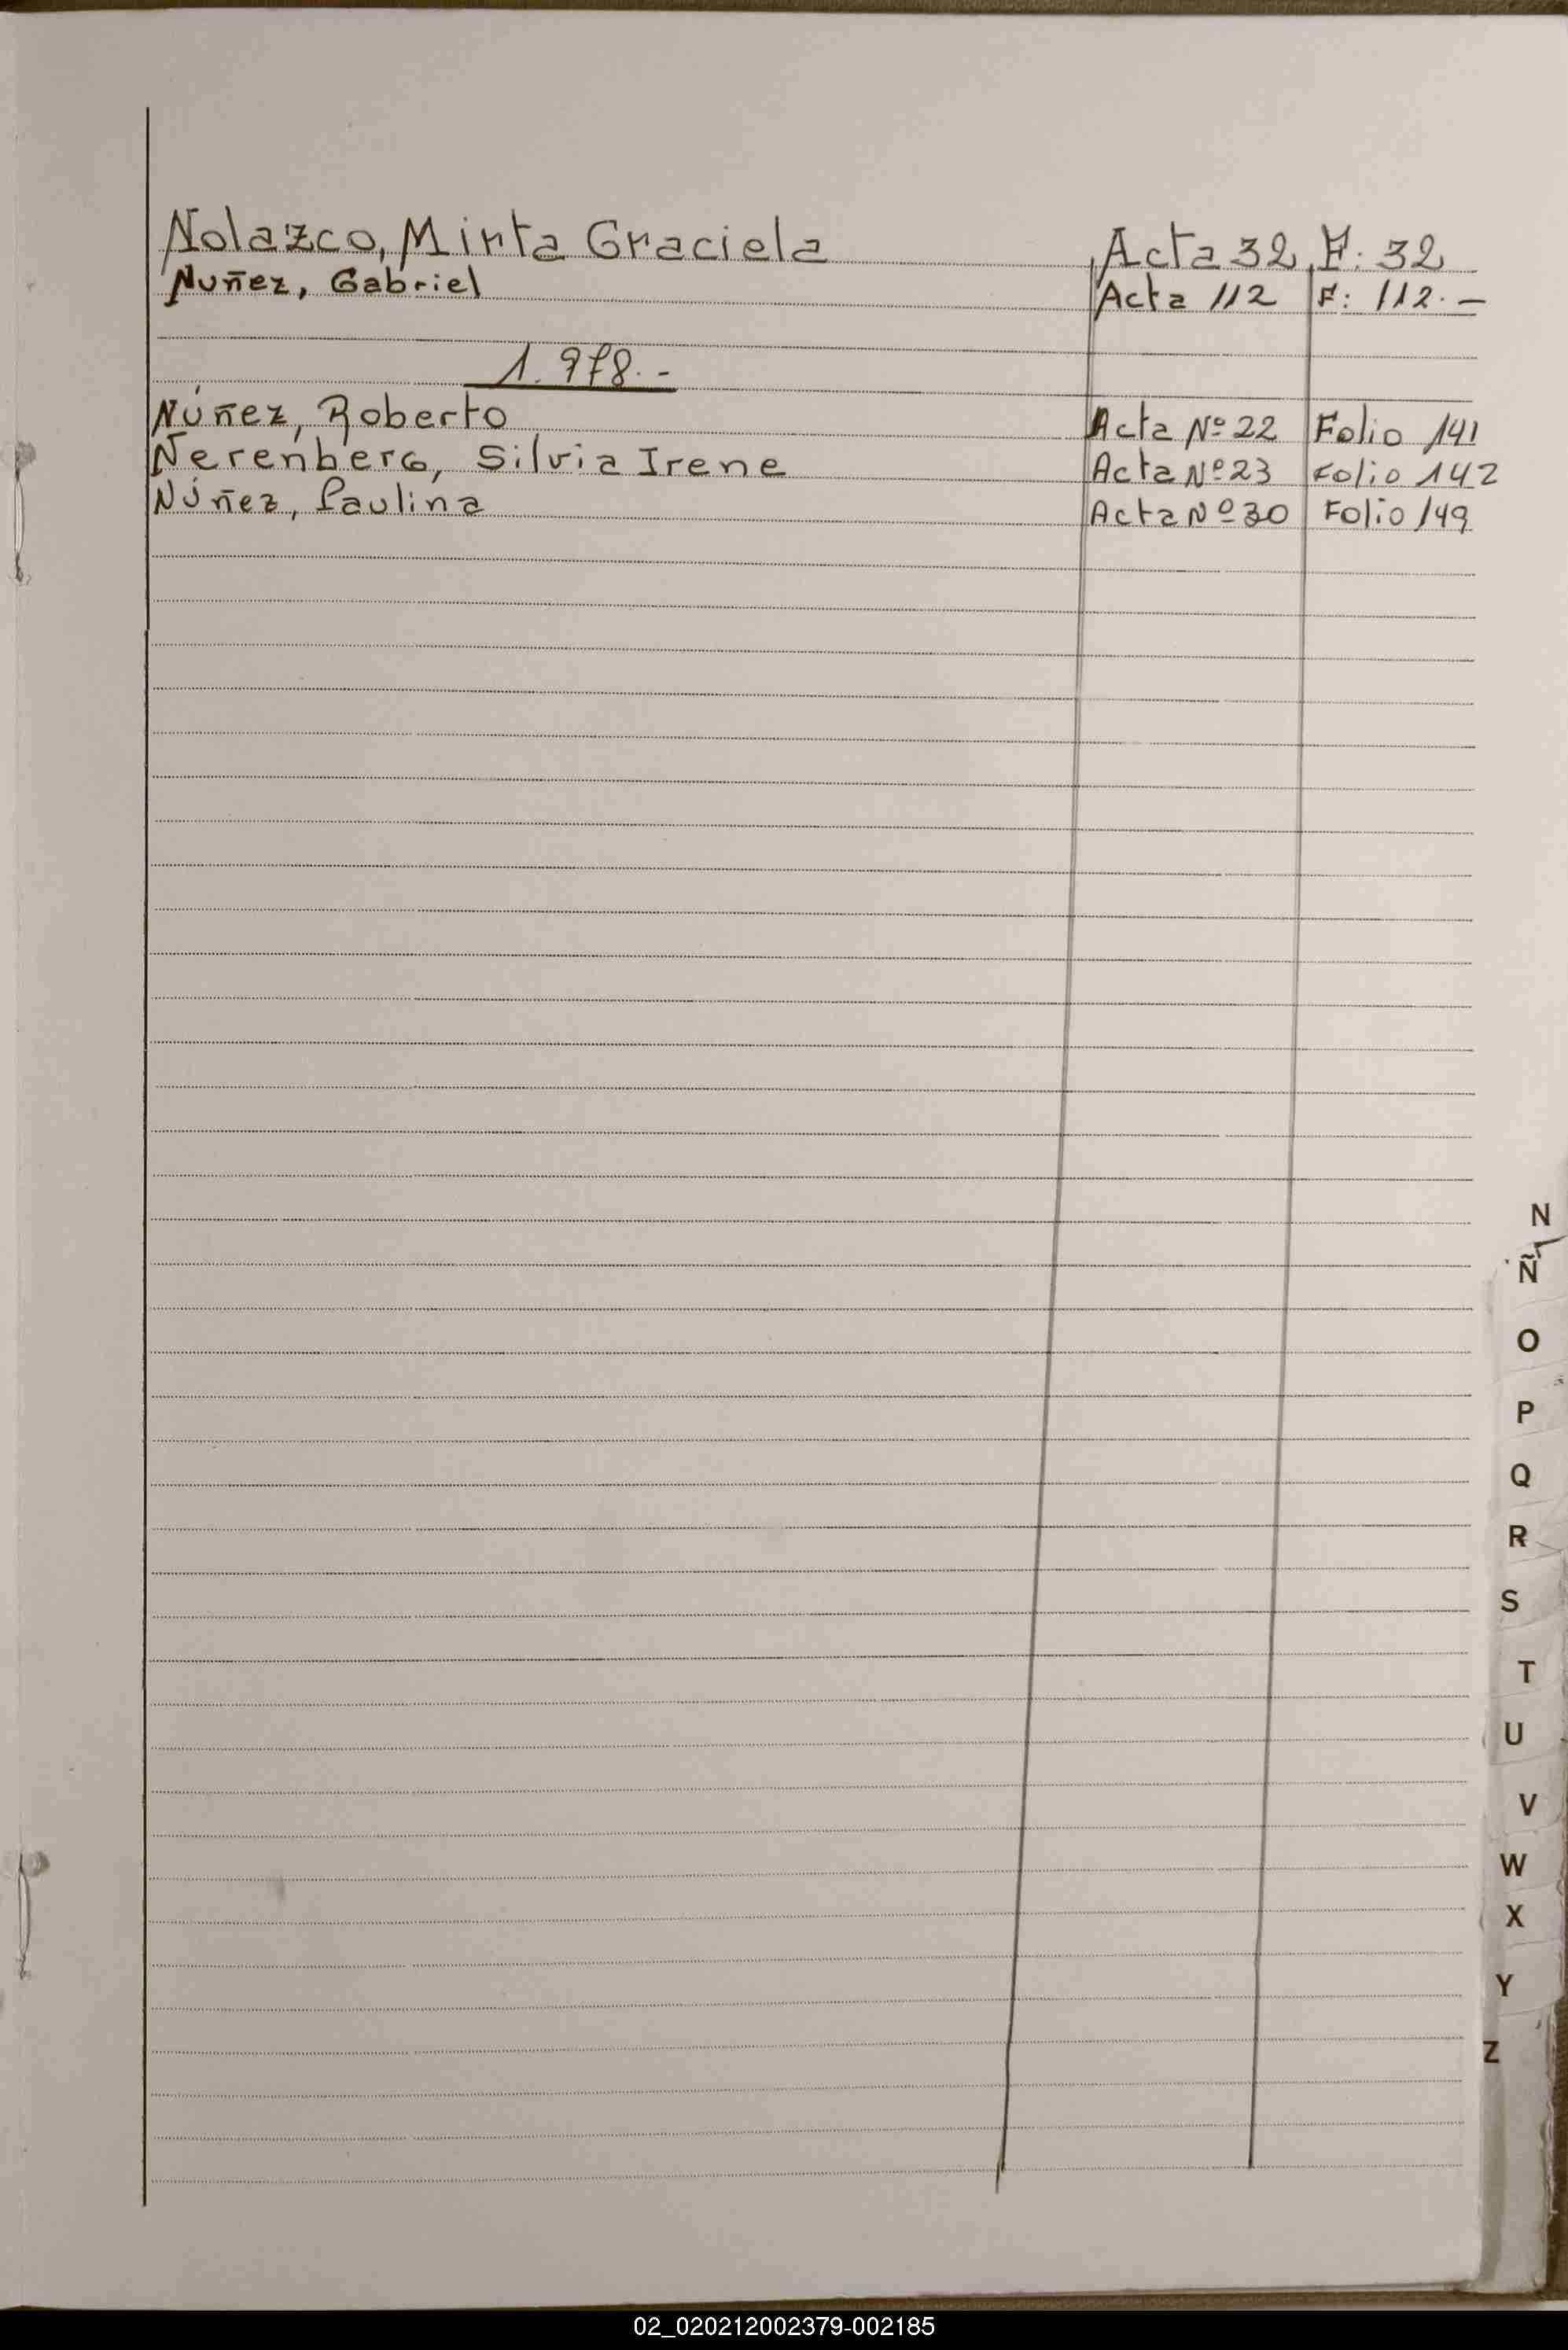 Nolazco, Mirta Graciela Acta 32 F: 32
Nuñez, Gabriel Acta 112 F: 112.—
1.978.-
Núñez, Roberto Acta Nº 22 Folio 141
Nerenberg, Silvia Irene Acta Nº 23 Folio 142
Núñez, Paulina Acta Nº 30 Folio 149
N
Ñ
O
P
Q
R
S
T
U
V
W
X
Y
Z
02_020212002379-002185